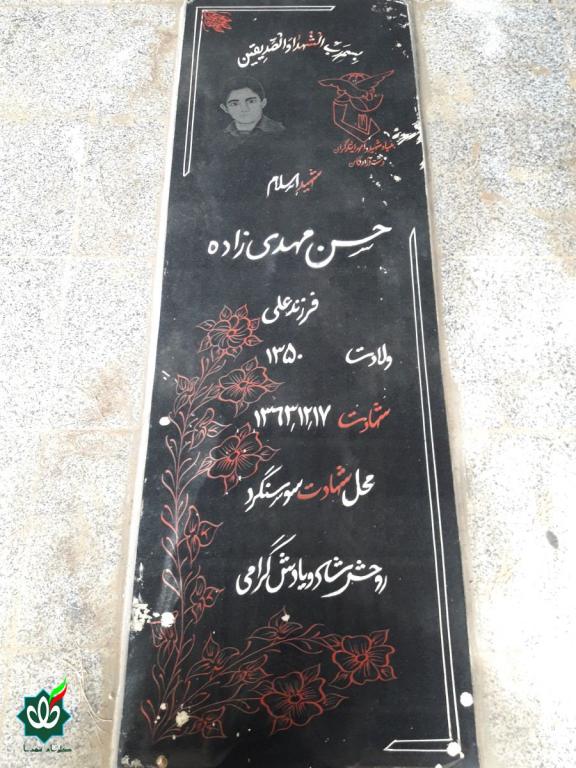 بسم رب الشهدا و الصدیقین
بنیاد شهید و امور ایثارگران
شهید اسلام
حسن مهدی زاده
فرزند علی
ولادت ۱۳۵۰
شهادت ۱۳۶۳,۱۲,۱۷
محل شهادت سوسنگرد
روحش شاد و یادش گرامی